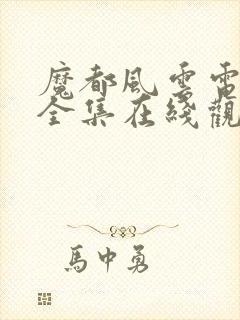 魔都風雲電
全集在綫觀
馬中勇